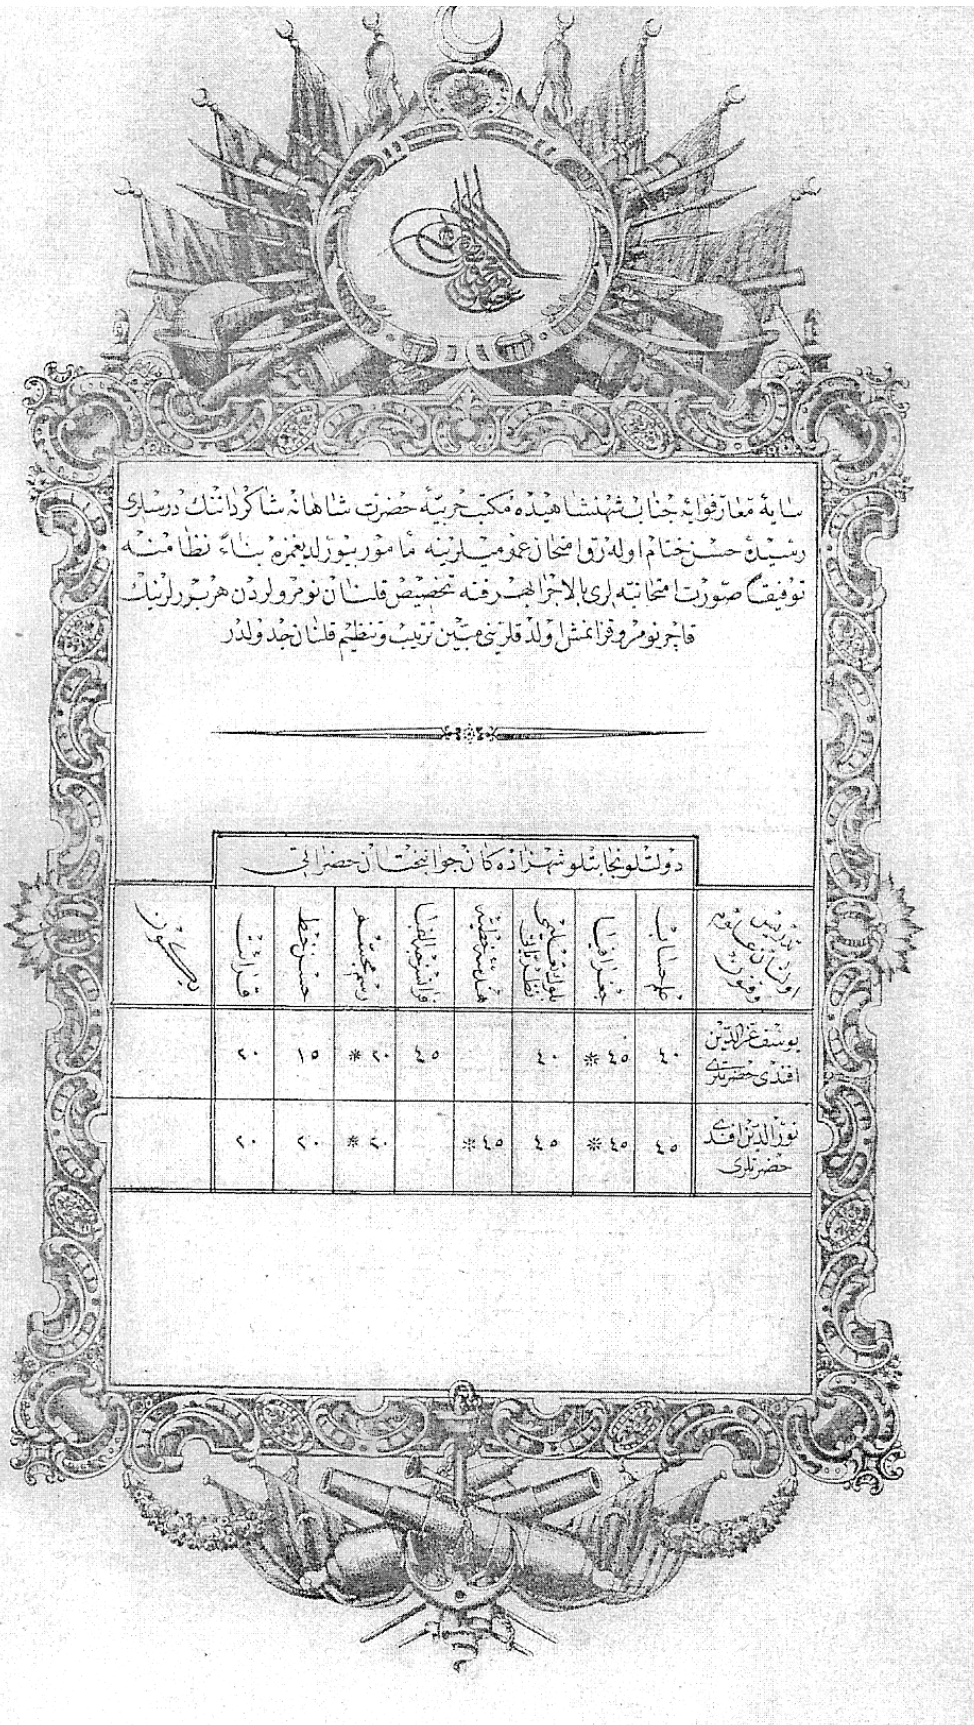 سایهٔ معارفوایهٔ جناب شهنشاهیده مکتب حربیهٔ حضرت شاهانه شاکرداننك درسلری
رسیدهٔ حسن ختام اوله‌رق امتحان عمومیلرینه مأمور بیورلدیغمزه بناءً نظامنه
توفیقاً صورت امتحانیه‌لری بالاجرا بهر فنه تخصیص قلنان نومرولردن هر برلرینك
قاچر نومرو قزانمش اولدقلرینی مبین ترتیب و تنظیم قلنان جدولدر
دولتلو نجابتلو شهزاده‌کان جوانبختان حضراتی
تدریس اولنان علوم و فنون
علم حساب
جغرافیا
بلوك تعلیمی نظریاتی
هندسهٔ خطیه
فرانسزجه الفبا
رسم مجسمه
حسن خط
قرائت
یکون
یوسف عزالدین افندی حضرتلری
٤٠
٤٥ *
٤٠
٤٥
٢٠ *
١٥
٢٠
نورالدین افندی حضرتلری
٤٥
٤٥ *
٤٥
٤٥ *
٢٠ *
٢٠
٢٠